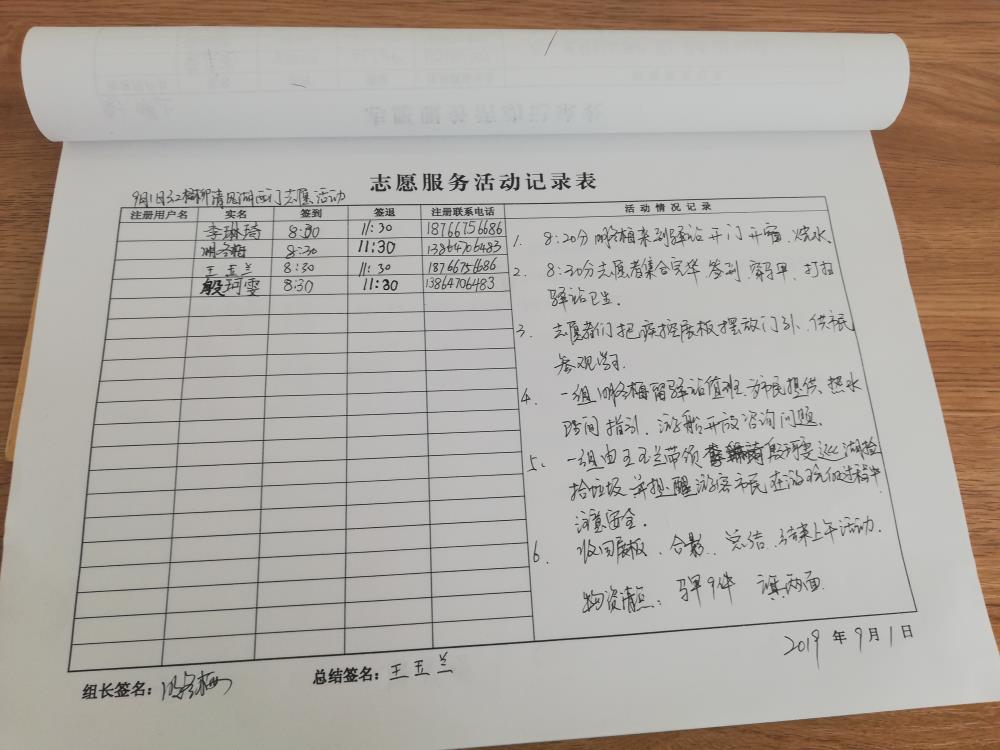 志愿服务活动记录表
9月1日 清风湖西门志愿活动
注册用户名 实名 签到 签退 注册联系电话 活动情况记录
李琳琦 8:30 11:30 18766756686
8:30 11:30 13864706483
王玉兰 8:30 11:30 18766756686
殷珂雯 8:30 11:30 13864706483
1. 8:20分 来到驿站开门开窗、烧水
2. 8:30分志愿者集合完毕 签到 穿马甲、打扫
驿站卫生.
3. 志愿者们把疾控展板摆放门外、供市民
参观学习.
4. 一组 留驿站值班、为市民提供 热水
指引、游船开放咨询问题.
5. 一组由王玉兰带领 殷珂雯巡湖捡
拾垃圾 并提醒游客市民在游玩的过程中
注意安全.
6. 收回展板、合影、总结、结束上午活动.
物资清点: 马甲9件 旗两面
2019年9月1日
组长签名:
总结签名: 王玉兰